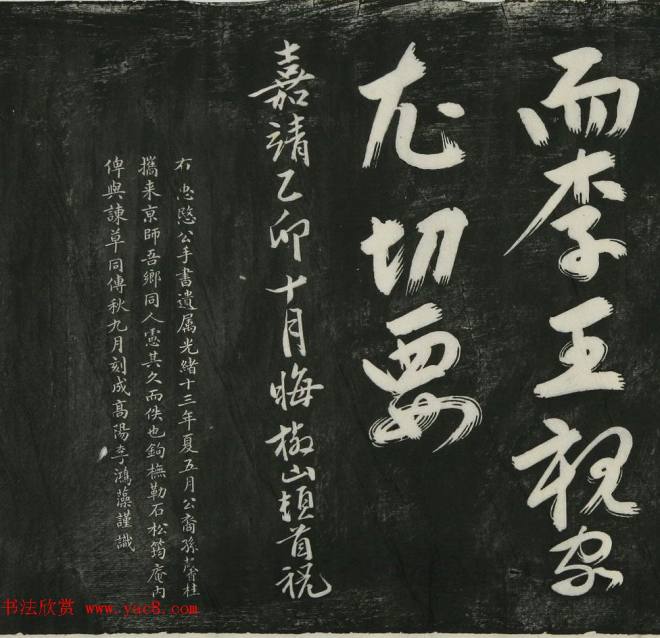 而李王親家
尤切要
嘉靖乙卯十月晦椒山頓首祝
右忠愍公手書遺属光緒十三年夏五月公裔孫
攜来京師吾鄉同人慮其久而佚也鉤橅勒石松筠庵内
俾與諫草同傳秋九月刻成高陽李鴻藻謹識
书法欣赏 www.yac8.com